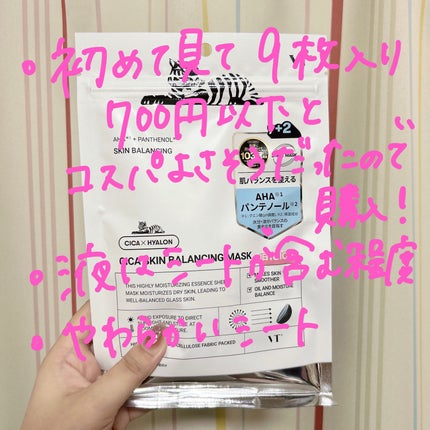 ・初めて見て9枚入り
700円以下と
コスパよさそうだったので
購入！
・液はシートが含む程度
・やわらかいシート
+ PANTHENOL
SKIN BALANCING
+2
103
MASK
肌バランスを整える
AHA※1
パンテノール※2
CICA × HYALON
CICA SKIN BALANCING MASK
THIS HIGHLY MOISTURIZING ESSENCE SHEET
MASK MOISTURIZES DRY SKIN, LEADING TO
WELL-BALANCED GLASS SKIN.
MAKES SKIN
SMOOTHER
OIL AND MOISTURE
BALANCE
EXPOSURE TO DIRECT
CELLULOSE FABRIC PACKED
VT